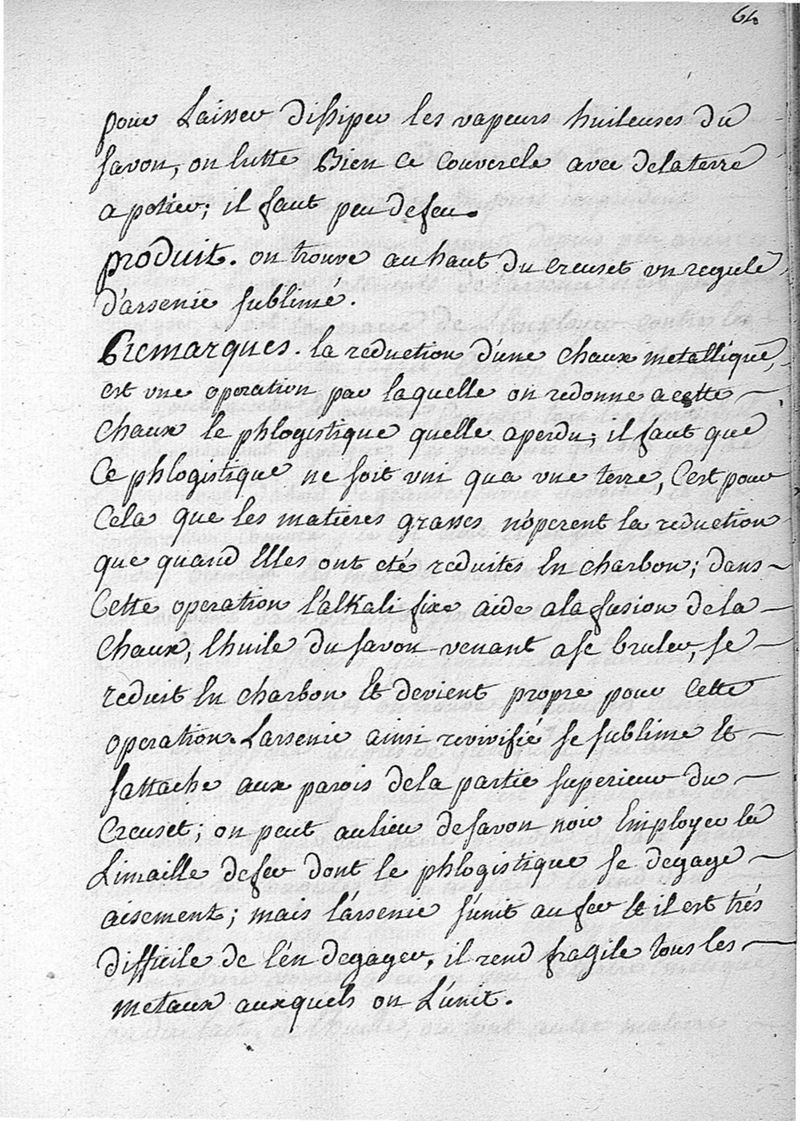 64
pour Laisser dissiper les vapeurs huileuses du
savon, on lutte Bien ce couvercle avec delaterre
a potier; il faut peu defeu.
produit. on trouve auhaut du creuset un regule
d'arsenic sublimé.
Remarques. la reduction d'une chaux metallique,
est une operation par laquelle on redonne acette
chaux le phlogistique quelle aperdu; il faut que
Ce phlogistique ne soit uni qua une terre, C'est pour
Cela que les matieres grasses n'operent la reduction
que quand Elles ont eté reduites En charbon; dans
Cette operation l'alkali fixe aide ala fusion dela
Chaux, l'huile du savon venant ase bruler, se
reduit En charbon Et devient propre pour Cette
operation. Larsenic ainsi revivifié se sublime Et
sattache aux parois dela partie superieur du
Creuset; on peut aulieu desavon noir Employer la
Limaille defer dont le phlogistique se degage
aisement; mais l'arsenic s'unit au fer Et il est trés
difficile de l'én degager, il rend fragile tous les
metaux auxquels on L'unit.